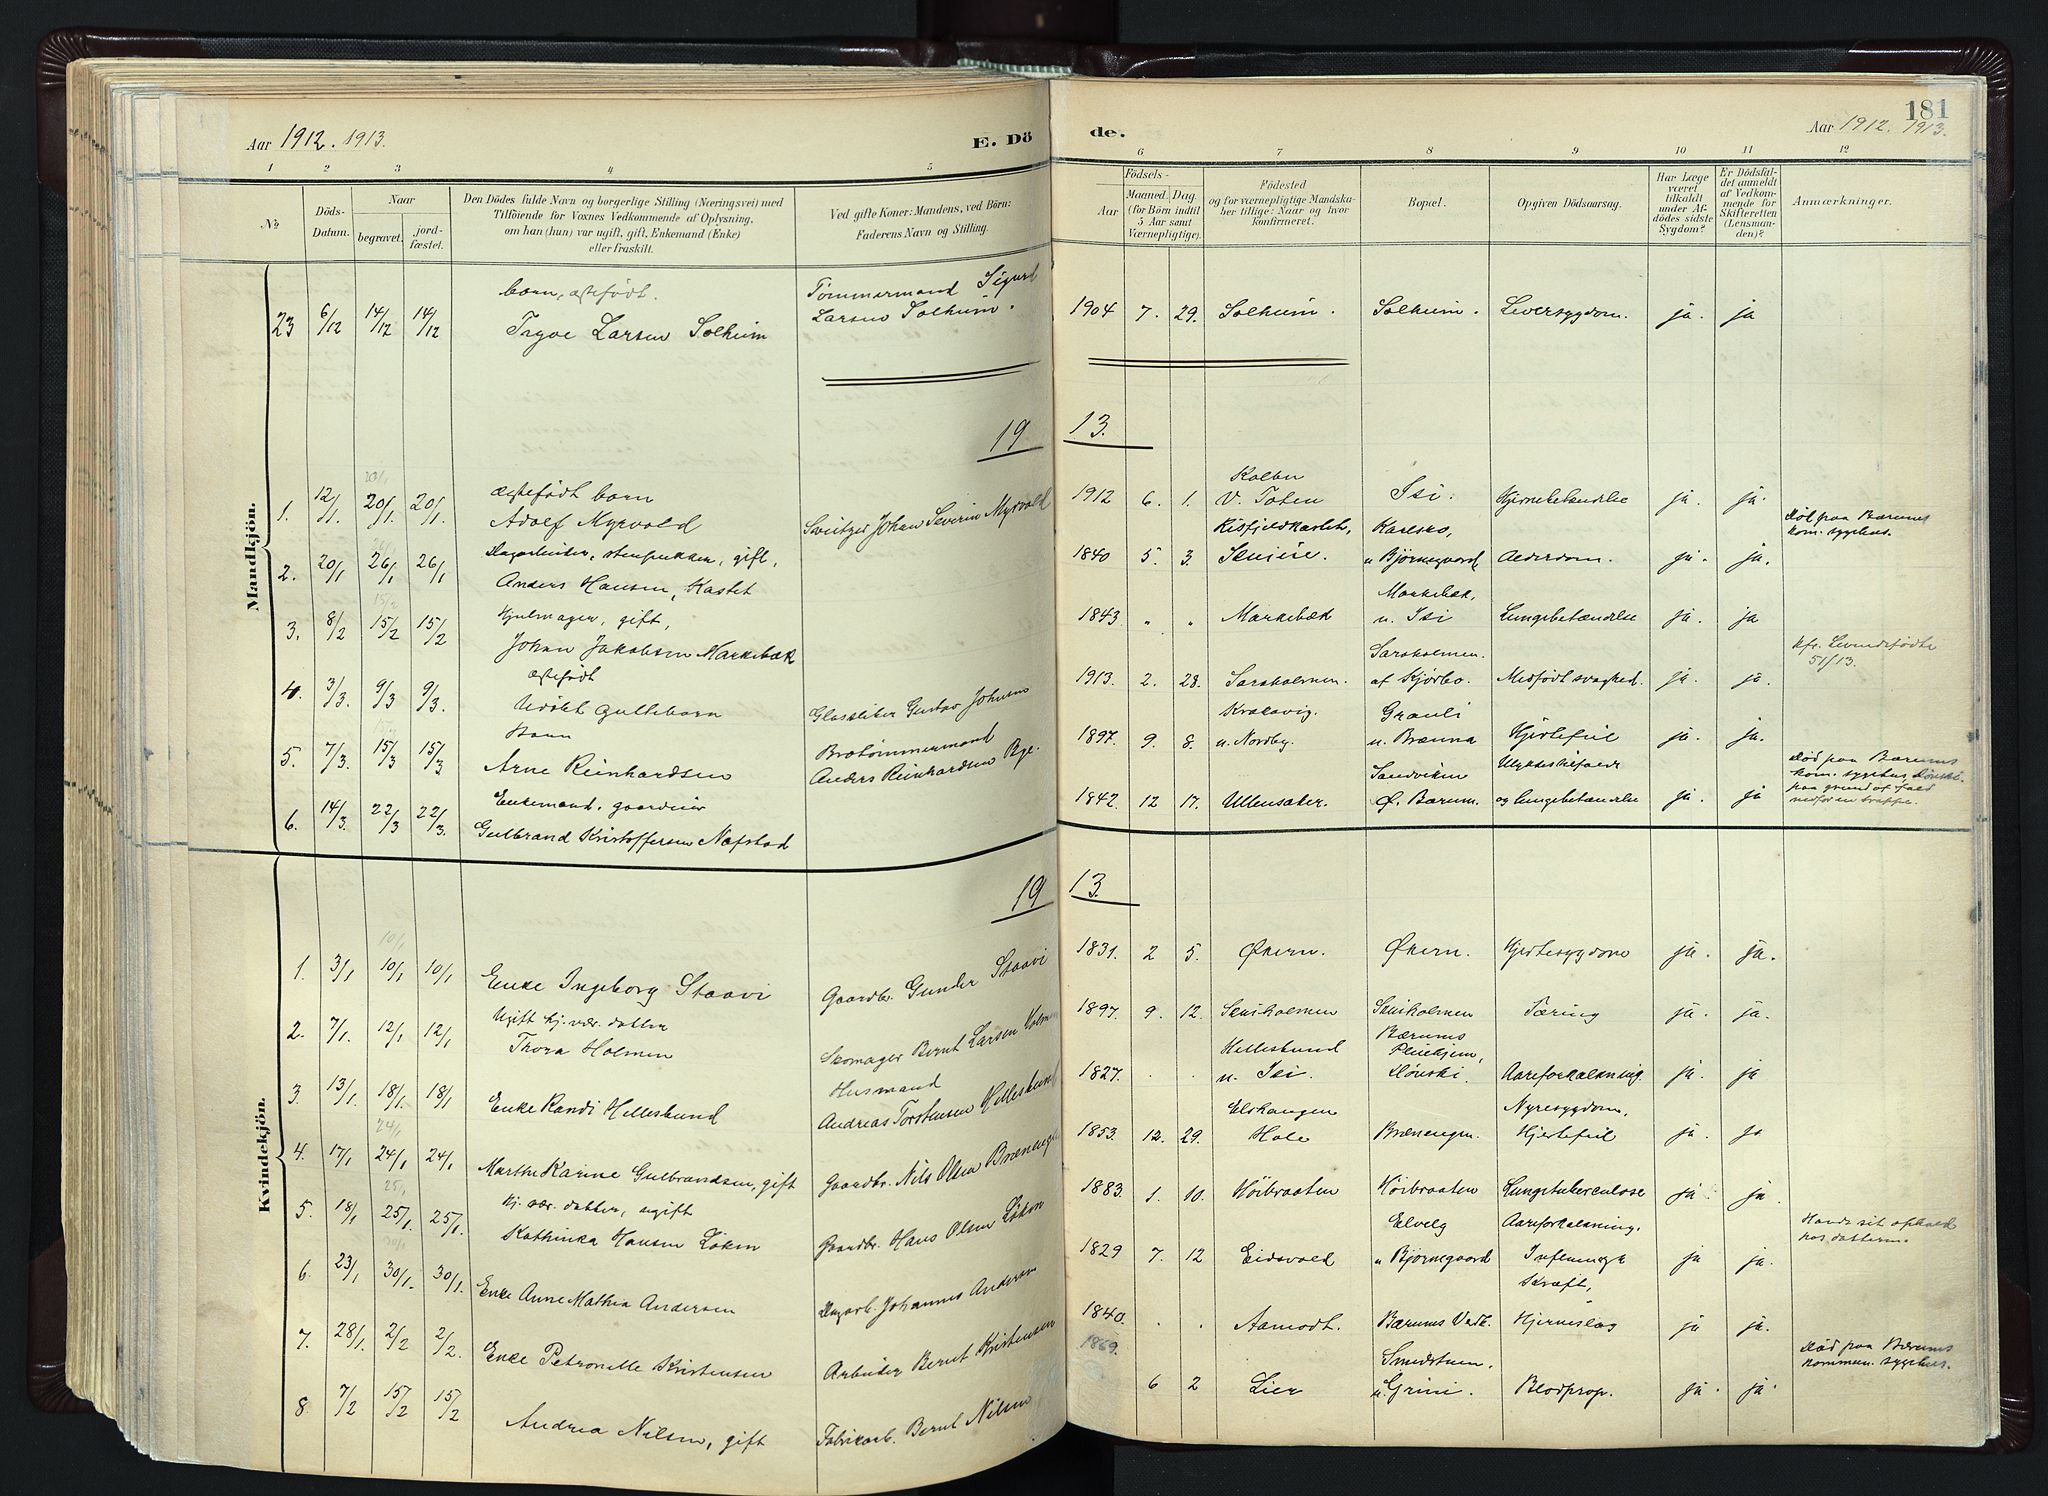 Aar 1912. 1913.
E. Dö
de.
Aar 1912. 1913.
181
1 2 3 4 5
6 7 8 9 10 11 12
No
Döds-Datum.
Naar
begravet.
jordfæstet.
Den Dödes fulde Navn og borgerlige Stilling (Næringsvei) med
Tilföiende for Voxnes Vedkommende af Oplysning,
om han (hun) var ugift, gift, Enkemand (Enke)
eller fraskilt.
Ved gifte Koner: Mandens, ved Börn:
Faderens Navn og Stilling.
Födsels-
Aar
Maaned. Dag.
(for Börn indtil
5 Aar samt
Værnepligtige).
Födested
og for værnepligtige Mandska-
ber tillige: Naar og hvor
konfirmeret.
Bopæl.
Opgiven Dödsaarsag.
Har Læge
været
tilkaldt
under Af-
dödes sidste
Sygdom?
Er Dödsfal-
det anmeldt
af Vedkom-
mende for
Skifteretten
(Lensman-
den)?
Anmærkninger.
Mandkjön.
23 6/12 14/12 14/12 barn, ægtefødt. Trygve Larsen Solheim Tømmermand Sigurd Larsen Solheim. 1904 7. 29. Solheim. Solheim. Leversygdom. ja. ja
19 13.
1. 12/1. 20/1 20/1. 20/1. ægtefødt barn Adolf Myrvold Sveitzer Johan Severin Myrvold 1912 6. 1. Kolbu V. Toten Isi. Hjernebetændelse ja. ja.
2. 20/1 26/1 26/1 Dagarbeider, stenpukker, gift, Anders Hansen, Kastet 1840 5. 3. Skuiie. Karlsro, u Bjørnegaard Alderdom. ja. ja. Død paa Bærums kom. sygehus.
3. 8/2 15/2 15/2 15/2 Hjulmager, gift, Johan Jakobsen Markebæk 1843. " " Markebæk Markebæk, u. Isi Lungebetændelse ja. ja
4. 3/3. 9/3 9/3. ægtefødt Udøbt guttebarn Glassliber Gustav Johnsen 1913. 2. 28. Saraholmen. Saraholmen. af Kjørbo. Medfødt svaghed. ja. ja. kfr. Levendefødte 51/13.
5. 7/3. 15/3 15/3 Barn Arne Reinhardsen Brotømmermand Anders Reinhardsen Bge. 1897. 9. 8. Krokavig. u. Nordby. Granli u. Brænna Hjertefeil ja. ja.
6. 14/3. 22/3 22/3. Enkemand, gaardeier Gulbrand Kristoffersen Næfstad 1842. 12 17. Ullensaker. Sandviken Ø. Bærum. Ulykkestilfælde og lungebetændelse ja. ja Død paa Bærums kom. sygehus, Dønski. paa grund af fald nedfor en trappe.
Kvindekjön.
19 13.
1. 3/1. 10/1 10/1 10/1. Enke Ingeborg Staavi Gaardbr. Gunder Staavi 1831. 2 5. Økern. Økern. Hjertesygdom ja. ja.
2. 7/1. 12/1 12/1. Ugift hj. vær. datter Thora Holmen Skomager Bernt Larsen Holmen 1897. 9. 12. Skuiholmen Skuiholmen Tæring ja ja.
3. 13/1. 18/1. 18/1 Enke Randi Hellesund Husmand Andreas Torstensen Hellesund 1827. . . Hellesund u. Isi. Bærums Pleiehjem, Dønski. Aareforkalkning. ja. ja
4. 17/1 24/1 24/1 24/1. Marthe Karine Gulbrandsen, gift Gaardbr. Nils Olsen Brænengen 1853. 12. 29. Elshaugen Hole Brænengen. Nyresygdom, Hjertefeil ja. ja
5. 18/1 25/1 25/1 25/1. hj. vær. datter, ugift Kathinka Hansen Løken Gaardbr. Hans Olsen Løken 1883. 1. 10. Høibraaten Høibraaten Lungetuberculose ja. ja.
6. 23/1 30/1 30/1. 30/1. Enke Anne Mathea Andersen Dagarb. Johannes Andersen 1829 7. 12 Eidsvold Elvely u Bjørnegaard Aareforkalkning. ja ja. Havde sit ophold hos datteren.
7. 28/1. 2/2 2/2. Enke Petronelle Kristensen Arbeider Bernt Kristensen 1840. . . Aamodt. Bærums Verk. Hjerneslag ja ja.
8. 7/2 15/2 15/2 Andrea Nilsen, gift Fabrikarb. Bernt Nilsen 1869. 6 2 Lier u. Grini. Blodprop. ja. ja. Død paa Bærums kommun. sygehus.